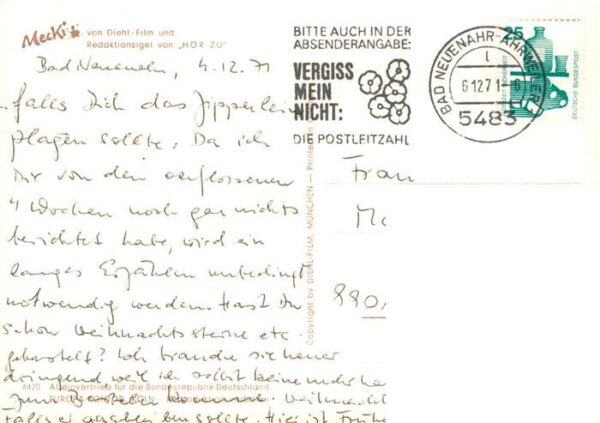 Mecki von Diehl-Film und
Redaktionsigel von „HÖR ZU"
BITTE AUCH IN DER
ABSENDERANGABE:
VERGISS
MEIN
NICHT:
DIE POSTLEITZAHL
BAD NEUENAHR-AHRWEILER 1
6.12.71-6
5483
25
DEUTSCHE BUNDESPOST
Bad Neuenahr, 4.12.71
..falls Dich das Zipperlein
plagen sollte. Da ich
Dir von den verflossenen
4 Wochen noch gar nichts
berichtet habe, wird ein
langes Erzählen unbedingt
notwendig werden. Hast Du
schon Weihnachtssterne etc.
gebastelt? Ich brauche sie heuer
dringend weil ich selbst keine mehr ha
zum Basteln Weihnacht
Falls er ausbleiben sollte. Hier ist Früh
Frau
880
Copyright by DIEHL-FILM, MÜNCHEN — Printed in
4470 Alleinvertrieb für die Bundesrepublik Deutschland